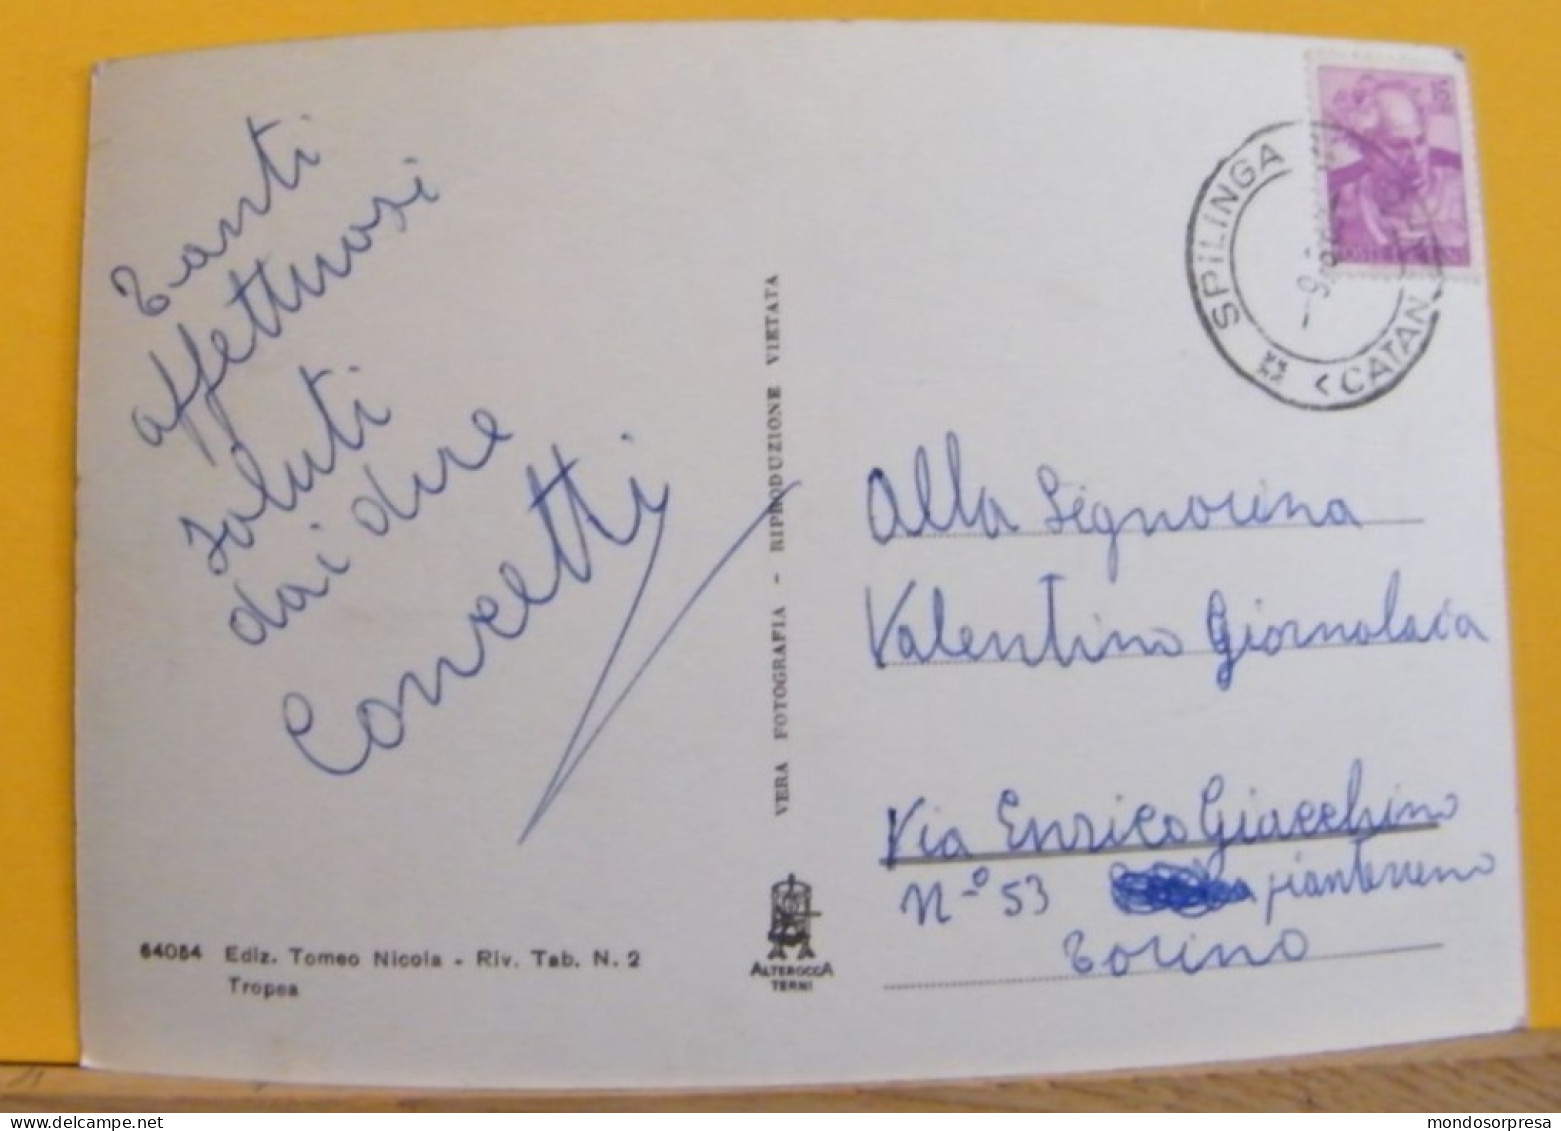 Tanti
affettuosi
saluti
dai due
64084 Ediz. Tomeo Nicola - Riv. Tab. N. 2
Tropea
VERA FOTOGRAFIA - RIPRODUZIONE VIETATA
ALTEROCCA
TERNI
SPILINGA
(CATAN
15
Alla Signorina
Valentino
Via Enrico Giacchino
N.º 53 pianterreno
Torino
mondosorpresa